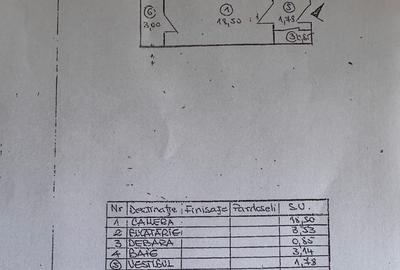 6
3,00
1
18,50
5
1,78
3 0,85
Nr Destinație Finisaje Pardoseli S.U.
1 CAMERA 18,50
2 BUCĂTĂRIE 3,53
3 DEBARA 0,85
4 BAIE 3,14
5 VESTIBUL 1,78